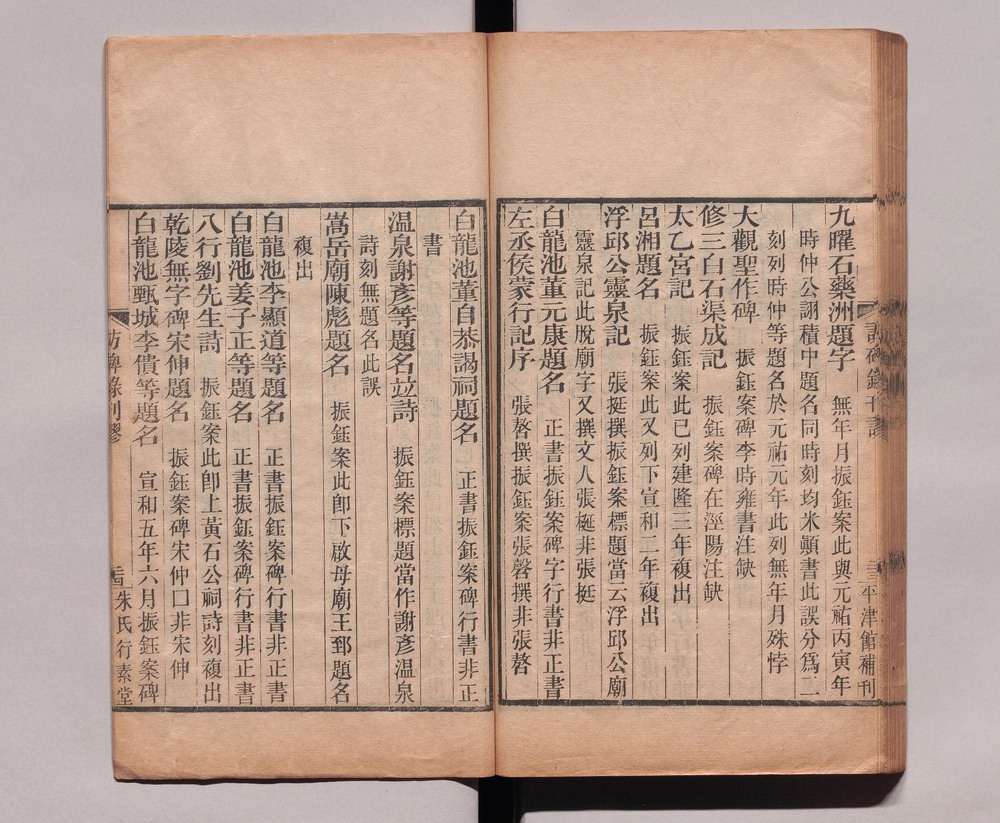 九曜石藥洲題字　無年月振鈺案此與元祐丙寅年
時仲公詡積中題名同時刻均米顚書此誤分爲二
刻列時仲等題名於元祐元年此列無年月殊悖
大觀聖作碑　振鈺案碑李時雍書注缺
修三白石渠成記　振鈺案碑在涇陽注缺
太乙宮記　振鈺案此已列建隆三年複出
呂湘題名　振鈺案此又列下宣和二年複出
浮邱公靈泉記　張挺撰振鈺案標題當云浮邱公廟
靈泉記此脫廟字又撰文人張梴非張挺
白龍池董元康題名　正書振鈺案碑字行書非正書
左丞侯蒙行記序　張暓撰振鈺案張磬撰非張暓
白龍池董自恭謁祠題名　正書振鈺案碑行書非正
書
温泉謝彥等題名竝詩　振鈺案標題當作謝彥温泉
詩刻無題名此誤
嵩岳廟陳彪題名　振鈺案此卽下啟母廟王鄄題名
複出
白龍池李顯道等題名　正書振鈺案碑行書非正書
白龍池姜子正等題名　正書振鈺案碑行書非正書
八行劉先生詩　振鈺案此卽上黃石公祠詩刻複出
乾陵無字碑宋伸題名　振鈺案碑宋仲口非宋伸
白龍池甄城李僙等題名　宣和五年六月振鈺案碑
平津館補刊
訪碑錄刊謬
朱氏行素堂